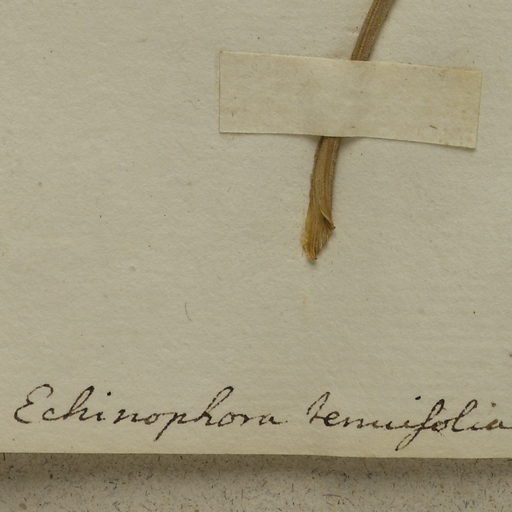 Echinophora tenuifolia